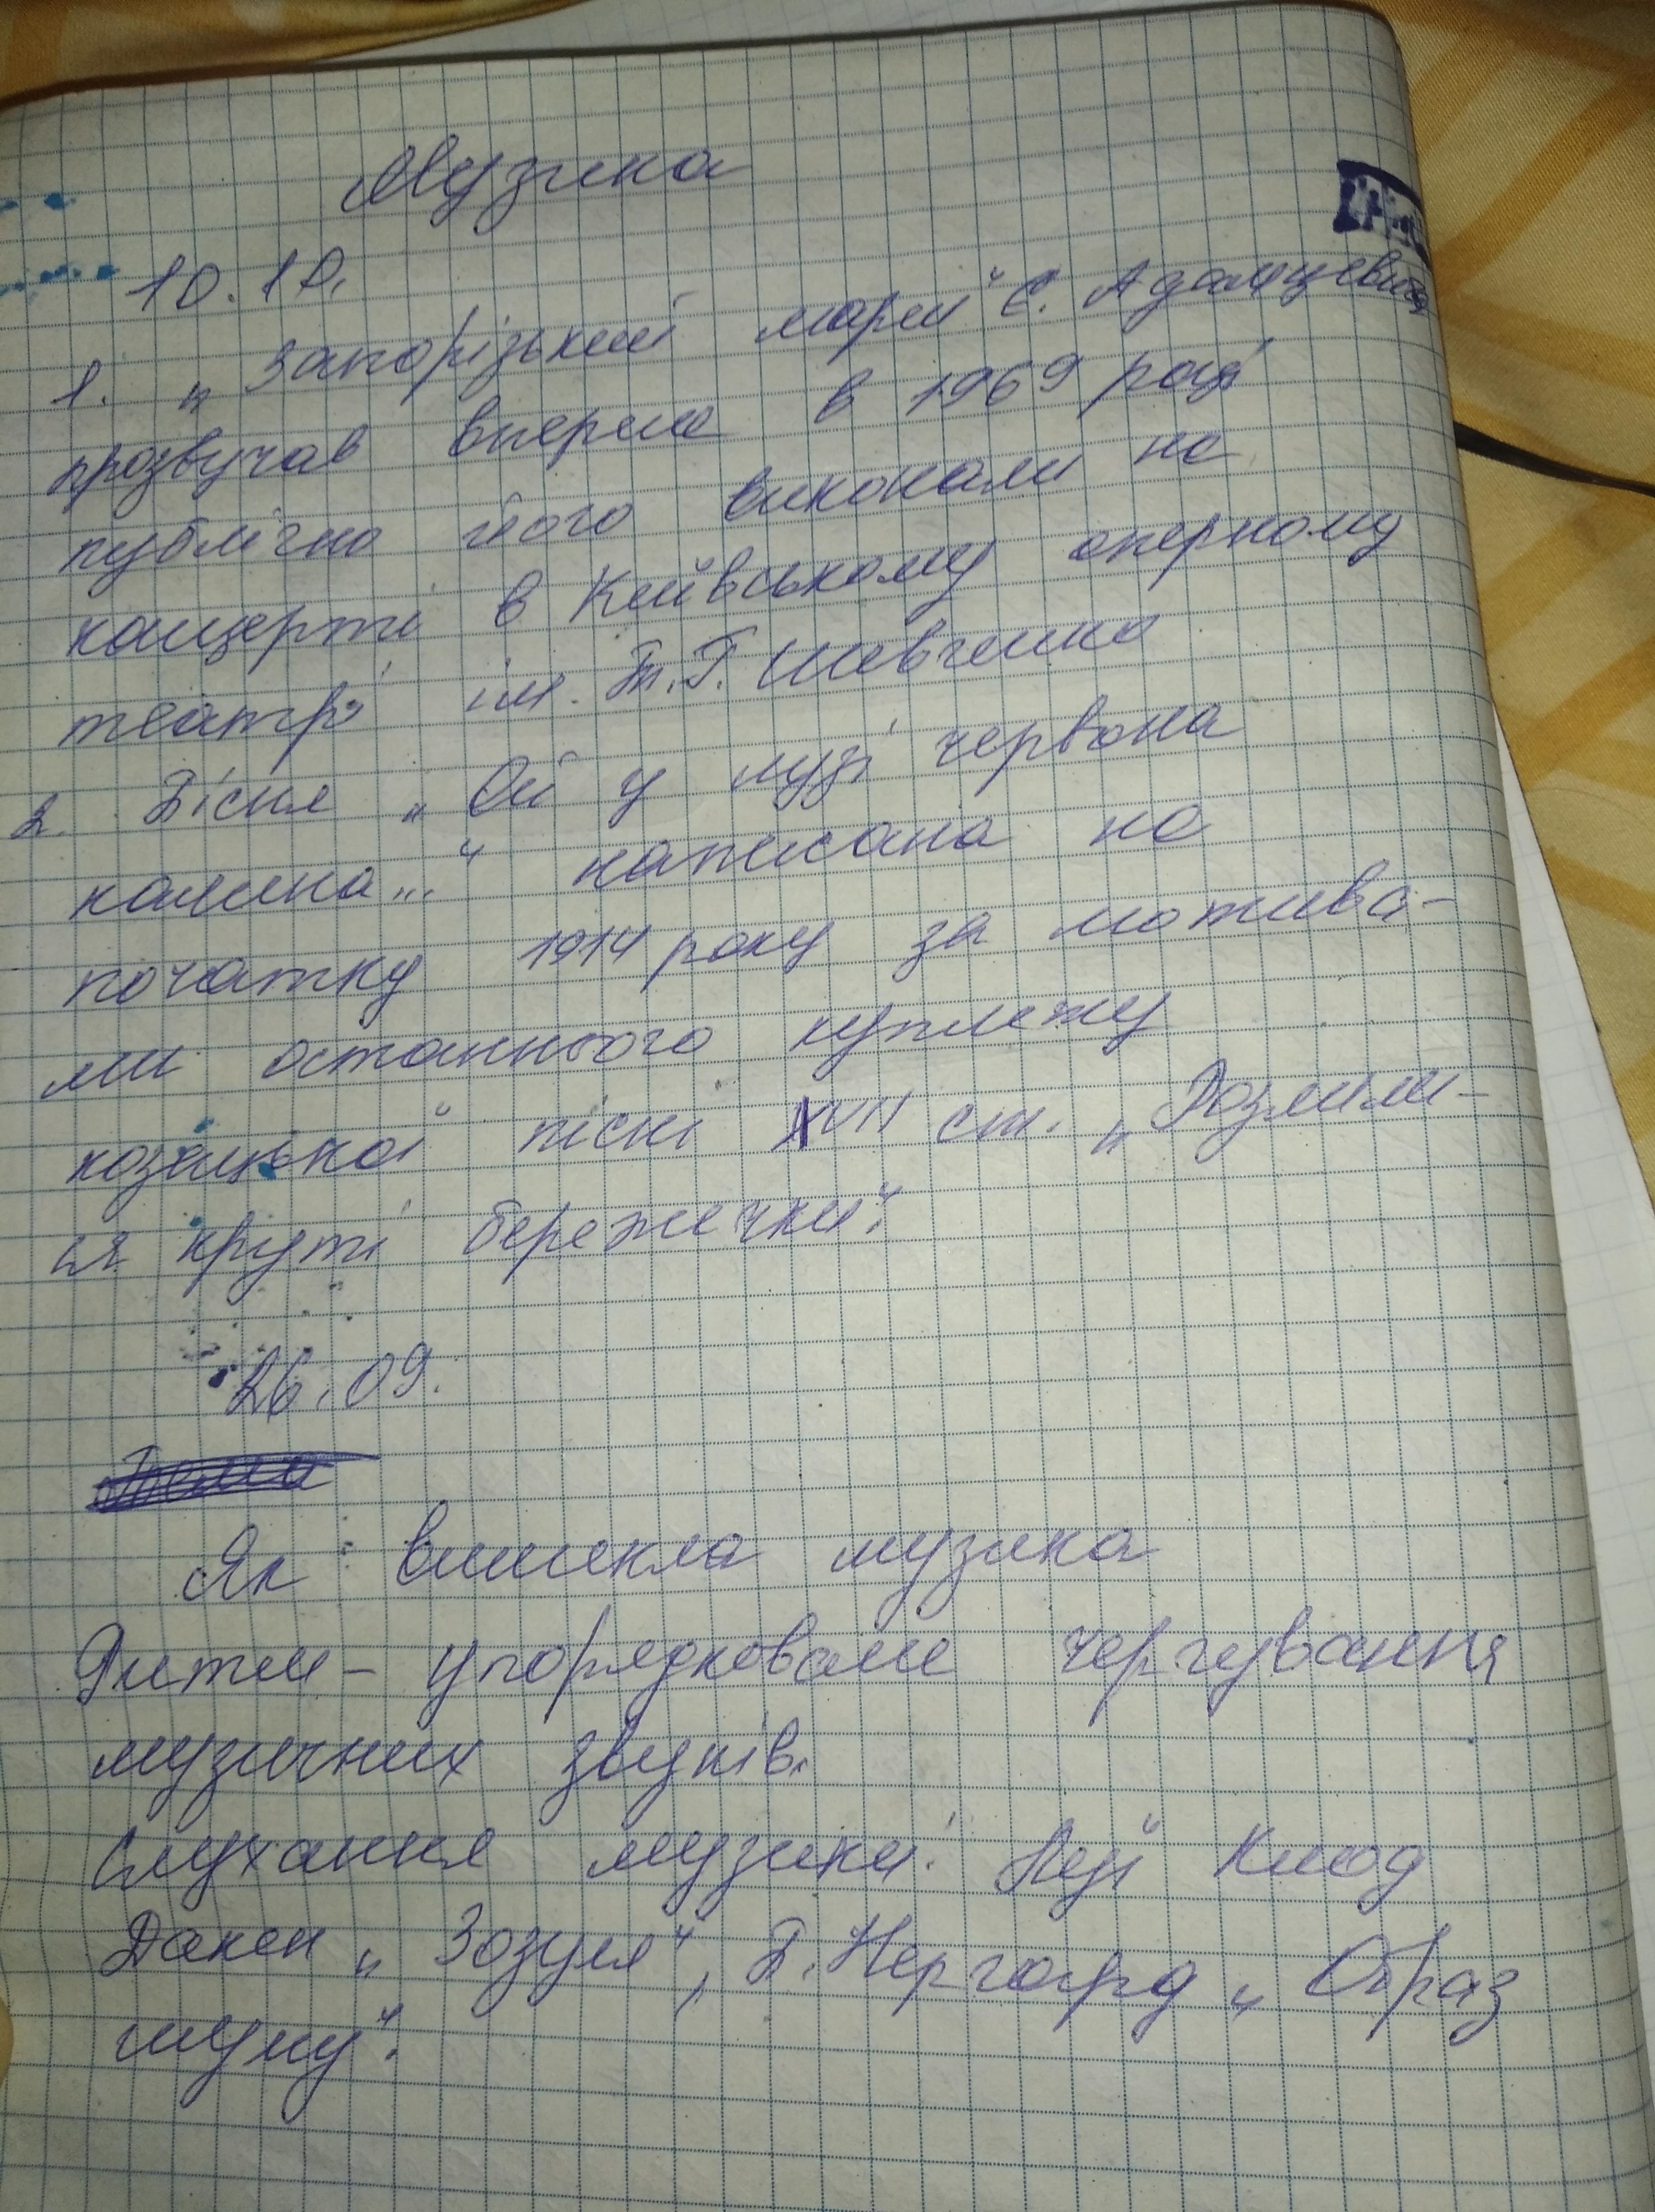 Музика
10.10.
1. „Запорізький марш" Є. Адамцевич
прозвучав вперше в 1969 році
публічно його виконали на
концерті в Київському оперному
театрі ім. Т.Г. Шевченка
2. Пісня „Ой у лузі червона
калина..." написана на
початку 1914 року за мотива-
ми останнього куплету
козацької пісні XVII ст. „Розлили-
ся круті бережечки".
26.09.
Тема
Як виникла музика
Ритм – упорядковане чергування
музичних звуків.
Слухання музики: Луї Клод
Дакен „Зозуля", П. Нергорд „Образ
шуму".